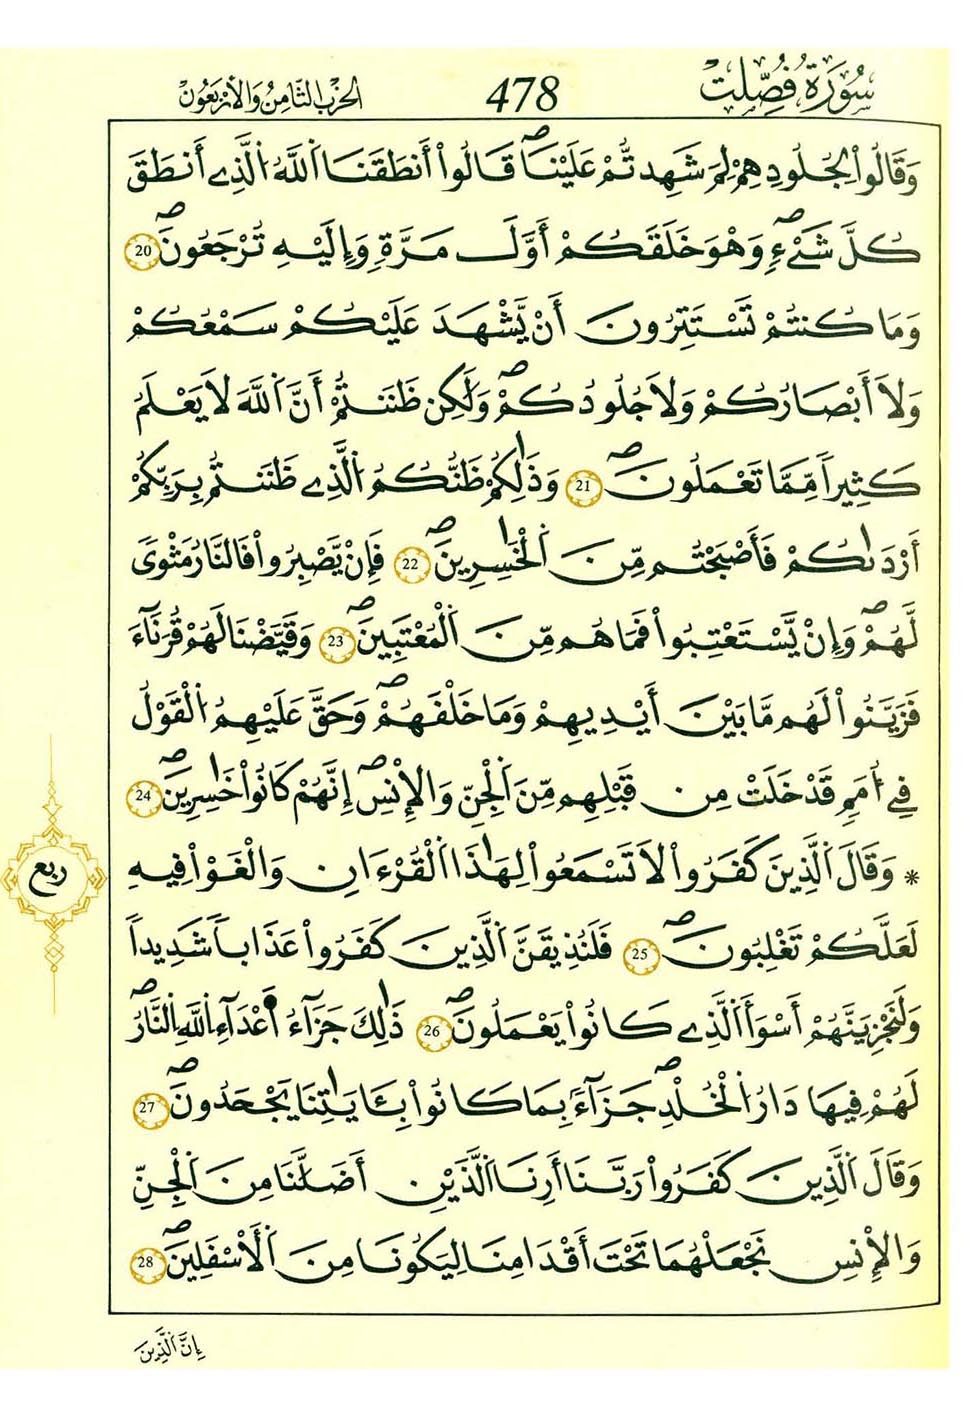 سُورَةُ فُصِّلَتْ
478
الحِزْبُ الثَّامِنُ وَالأَرْبَعُونَ
وَقَالُواْ لِجُلُودِهِمْ لِمَ شَهِدتُّمْ عَلَيْنَاۖ قَالُواْ أَنطَقَنَا اَ۬للَّهُ اُ۬لذِےٓ أَنطَقَ
كُلَّ شَےْءٖۖ وَهْوَ خَلَقَكُمْ أَوَّلَ مَرَّةٖ وَإِلَيْهِ تُرْجَعُونَۖ 20
وَمَا كُنتُمْ تَسْتَتِرُونَ أَنْ يَّشْهَدَ عَلَيْكُمْ سَمْعُكُمْ
وَلَا أَبْصَارُكُمْ وَلَا جُلُودُكُمْۖ وَلَٰكِن ظَنَنتُمْ أَنَّ اَ۬للَّهَ لَا يَعْلَمُ
كَثِيراٗ مِّمَّا تَعْمَلُونَۖ 21 وَذَٰلِكُمْ ظَنُّكُمُ اُ۬لذِے ظَنَنتُم بِرَبِّكُمْ
أَرْدَىٰكُمْ فَأَصْبَحْتُم مِّنَ اَ۬لْخَٰسِرِينَۖ 22 فَإِنْ يَّصْبِرُواْ فَالنَّارُ مَثْوىٗ
لَّهُمْۖ وَإِنْ يَّسْتَعْتِبُواْ فَمَا هُم مِّنَ اَ۬لْمُعْتَبِينَۖ 23 وَقَيَّضْنَا لَهُمْ قُرَنَآءَ
فَزَيَّنُواْ لَهُم مَّا بَيْنَ أَيْدِيهِمْ وَمَا خَلْفَهُمْۖ وَحَقَّ عَلَيْهِمُ اُ۬لْقَوْلُ
فِےٓ أُمَمٖ قَدْ خَلَتْ مِن قَبْلِهِم مِّنَ اَ۬لْجِنِّ وَالْإِنْسِۖ إِنَّهُمْ كَانُواْ خَٰسِرِينَۖ 24
* وَقَالَ اَ۬لذِينَ كَفَرُواْ لَا تَسْمَعُواْ لِهَٰذَا اَ۬لْقُرْءَانِ وَالْغَوْاْ فِيهِ
لَعَلَّكُمْ تَغْلِبُونَۖ 25 فَلَنُذِيقَنَّ اَ۬لذِينَ كَفَرُواْ عَذَاباٗ شَدِيداٗ
وَلَنَجْزِيَنَّهُمْ أَسْوَأَ اَ۬لذِے كَانُواْ يَعْمَلُونَۖ 26 ذَٰلِكَ جَزَآءُ اَ۬عْدَآءِ اِ۬للَّهِ اِ۬لنَّارُۖ
لَهُمْ فِيهَا دَارُ اُ۬لْخُلْدِۖ جَزَآءَۢ بِمَا كَانُواْ بِـَٔايَٰتِنَا يَجْحَدُونَۖ 27
وَقَالَ اَ۬لذِينَ كَفَرُواْ رَبَّنَا أَرِنَا اَ۬لذَيْنِ أَضَلَّٰنَا مِنَ اَ۬لْجِنِّ
وَالْإِنْسِ نَجْعَلْهُمَا تَحْتَ أَقْدَامِنَا لِيَكُونَا مِنَ اَ۬لْأَسْفَلِينَۖ 28
ربع
إِنَّ اَ۬لذِينَ